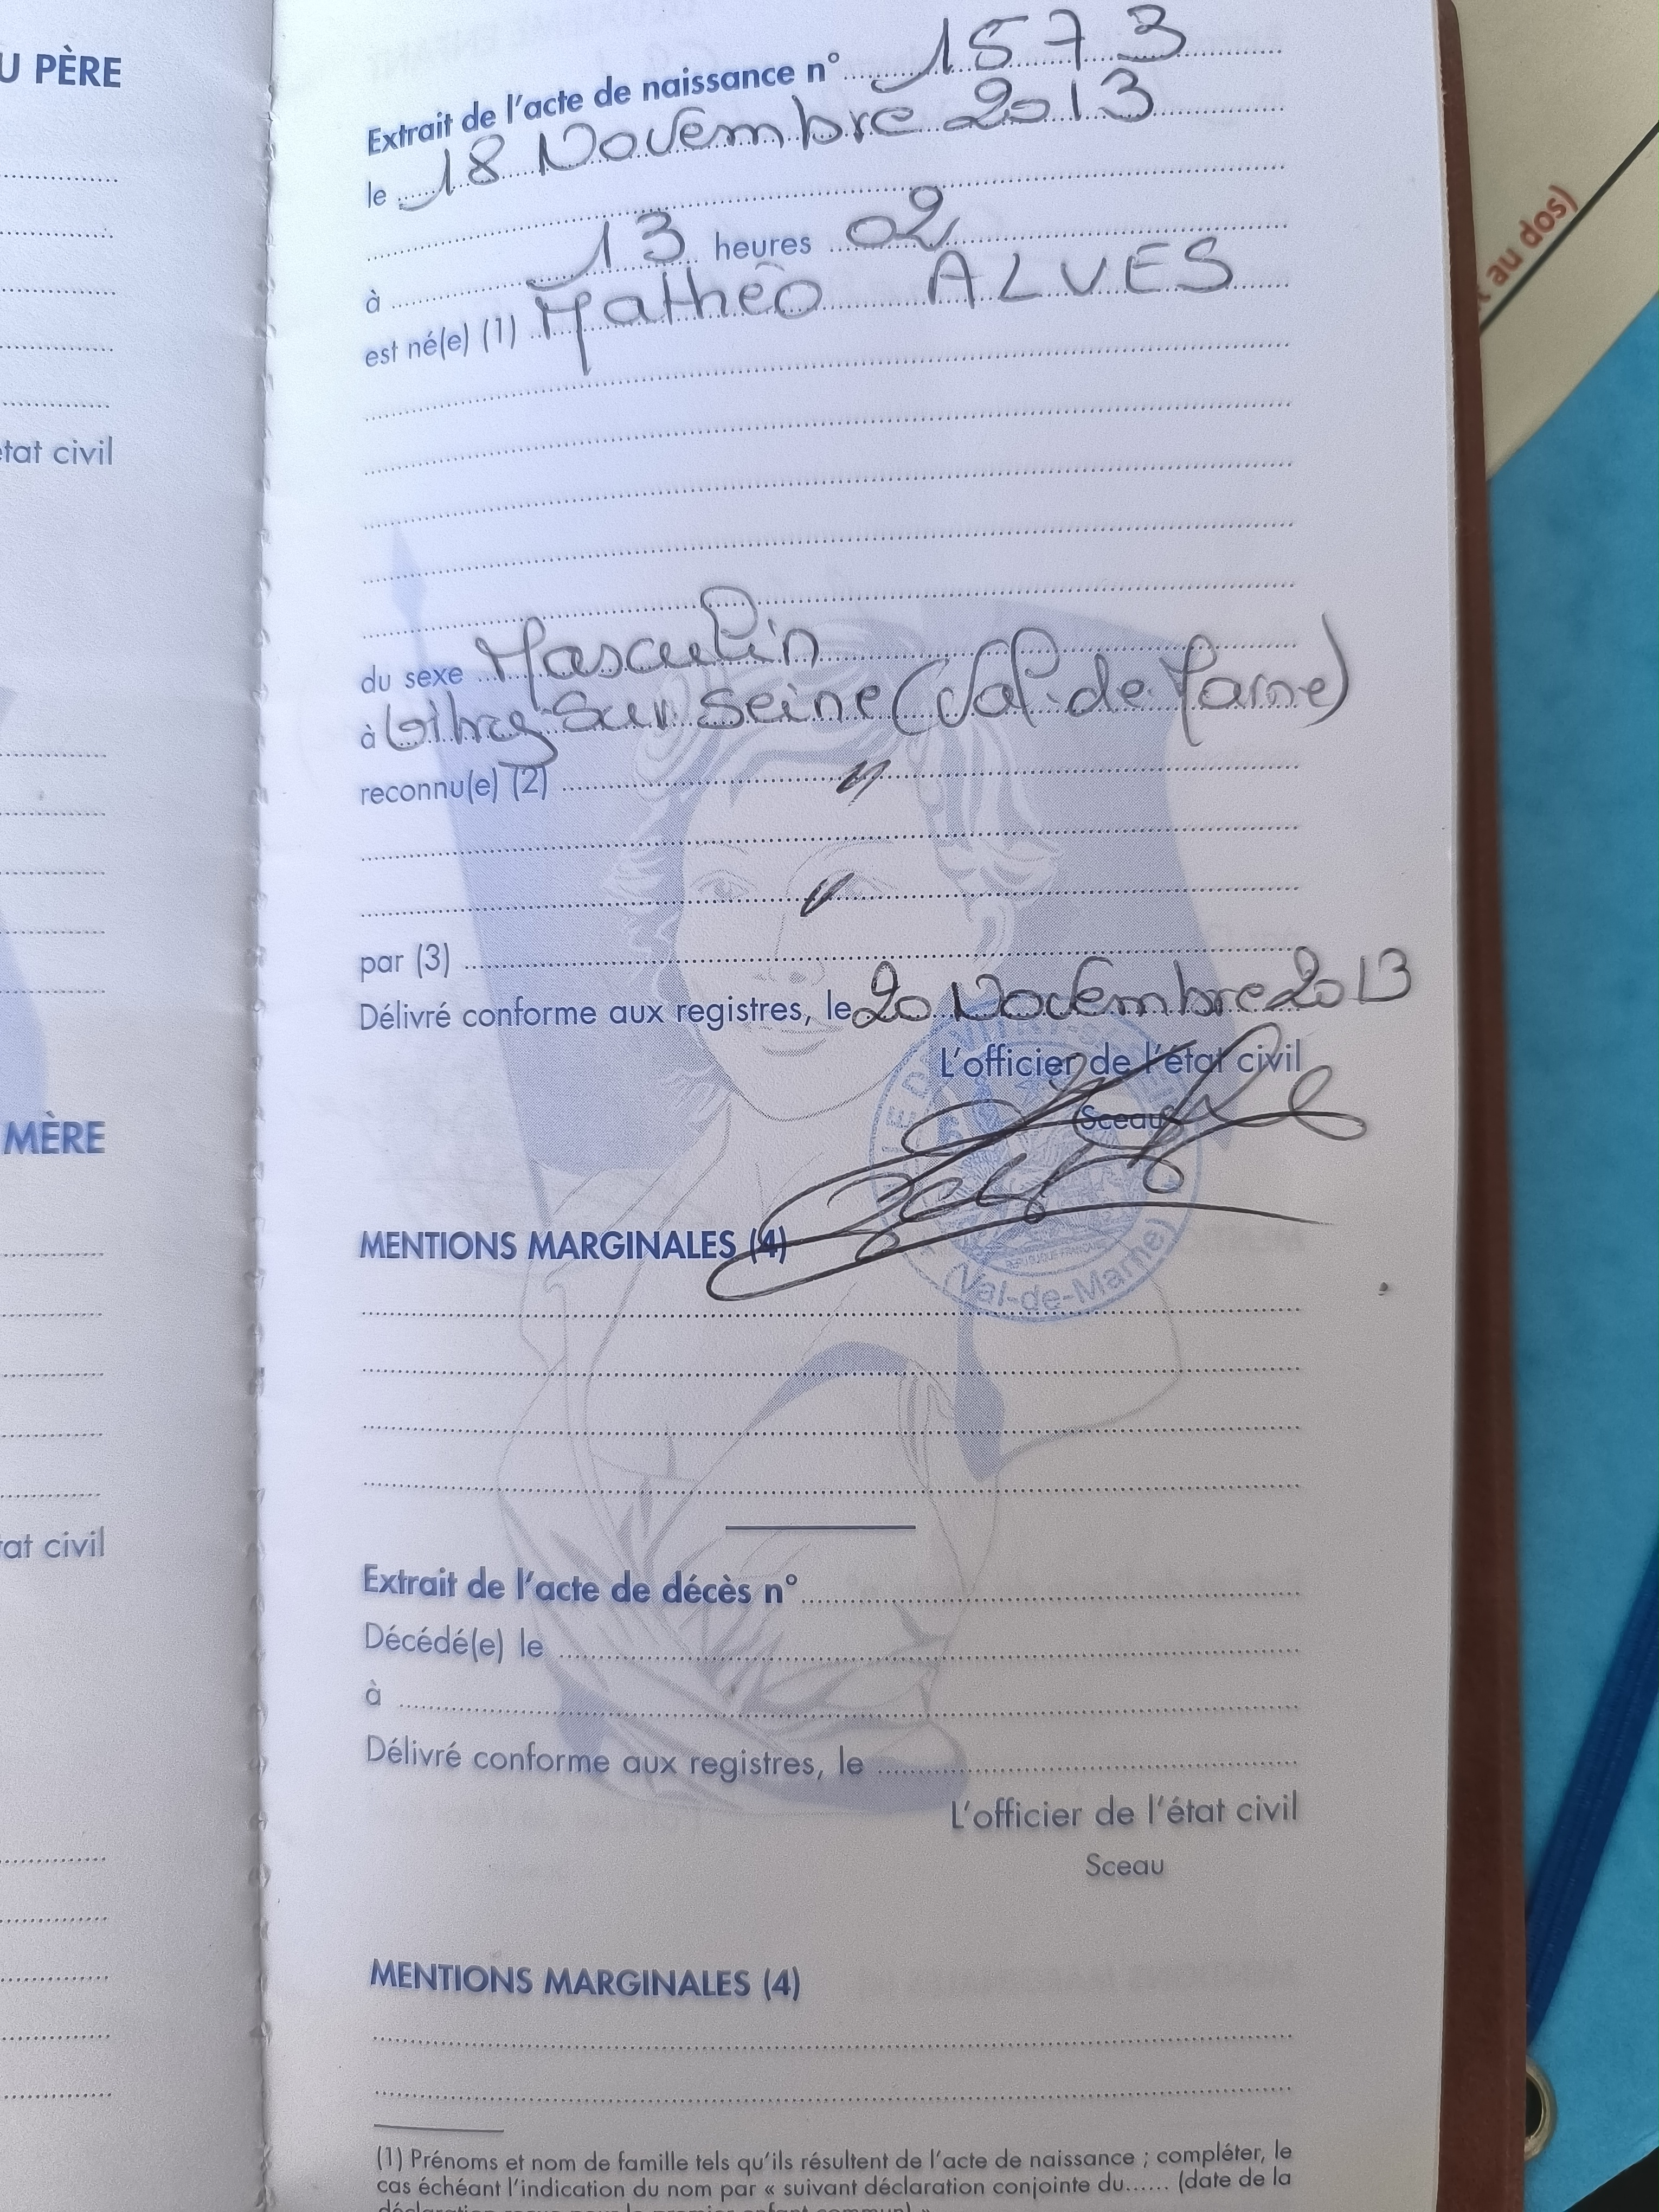 U PÈRE
état civil
MÈRE
état civil
Extrait de l'acte de naissance n° 1573
le 18 Novembre 2013
à 13 heures 02
est né(e) (1) Mathéo ALVES
du sexe Masculin
à Vitry-Sur Seine (Val-de-Marne)
reconnu(e) (2) "
"
par (3)
Délivré conforme aux registres, le 20 Novembre 2013
L'officier de l'état civil
Sceau
(Val-de-Marne)
MENTIONS MARGINALES (4)
Extrait de l'acte de décès n°
Décédé(e) le
à
Délivré conforme aux registres, le
L'officier de l'état civil
Sceau
MENTIONS MARGINALES (4)
(1) Prénoms et nom de famille tels qu'ils résultent de l'acte de naissance ; compléter, le
cas échéant l'indication du nom par « suivant déclaration conjointe du...... (date de la
au dos)